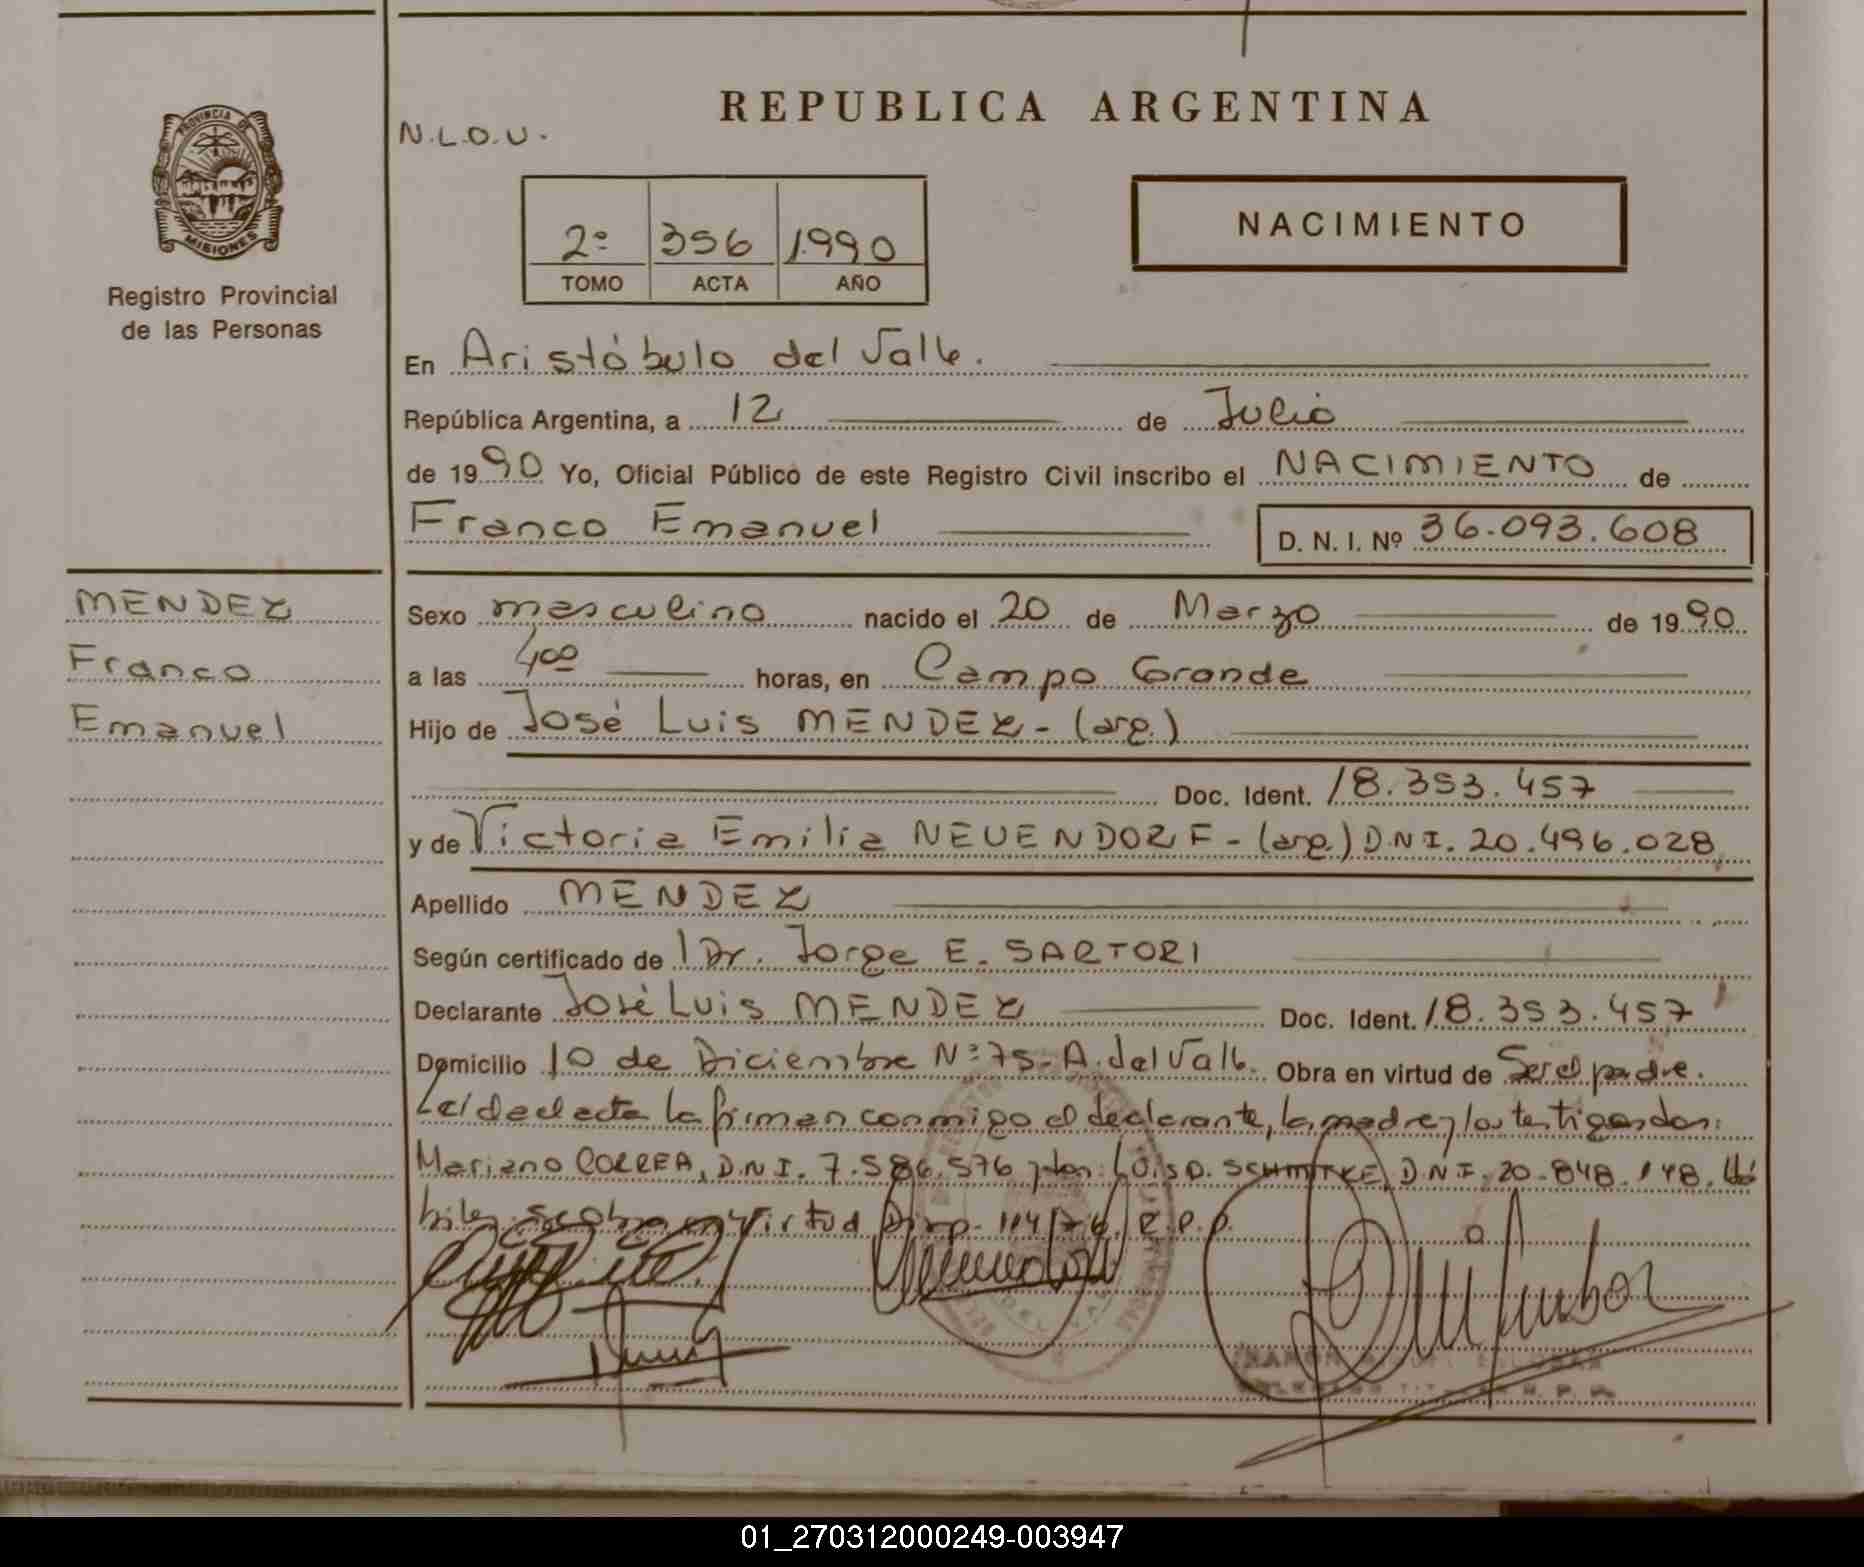 REPUBLICA ARGENTINA
N.L.O.U.
PROVINCIA DE
MISIONES
Registro Provincial
de las Personas
2º 356 1990
TOMO ACTA AÑO
NACIMIENTO
En Aristóbulo del Valle.
República Argentina, a 12 de Julio
de 1990 Yo, Oficial Público de este Registro Civil inscribo el NACIMIENTO de
Franco Emanuel D. N. I. Nº 36.093.608
MENDEZ
Franco
Emanuel
Sexo masculino nacido el 20 de Marzo de 1990
a las 4 00 horas, en Campo Grande
Hijo de José Luis MENDEZ - (arg.)
Doc. Ident. 18.353.457
y de Victoria Emilia NEUENDORF - (arg.) D.N.I. 20.496.028
Apellido MENDEZ
Según certificado de 1 Dr. Jorge E. SARTORI
Declarante José Luis MENDEZ Doc. Ident. 18.353.457
Domicilio 10 de Diciembre Nº 75 - A. del Valle. Obra en virtud de Ser el padre.
Leída el acta la firman conmigo el declarante, la madre y los testigos don:
Mariano CORREA, D.N.I. 7.586.576 y don: Luis D. SCHMITKE, D.N.I. 20.848.148. Há
biles. se obra en virtud Disp. 114/76, R.P.P.
01_270312000249-003947